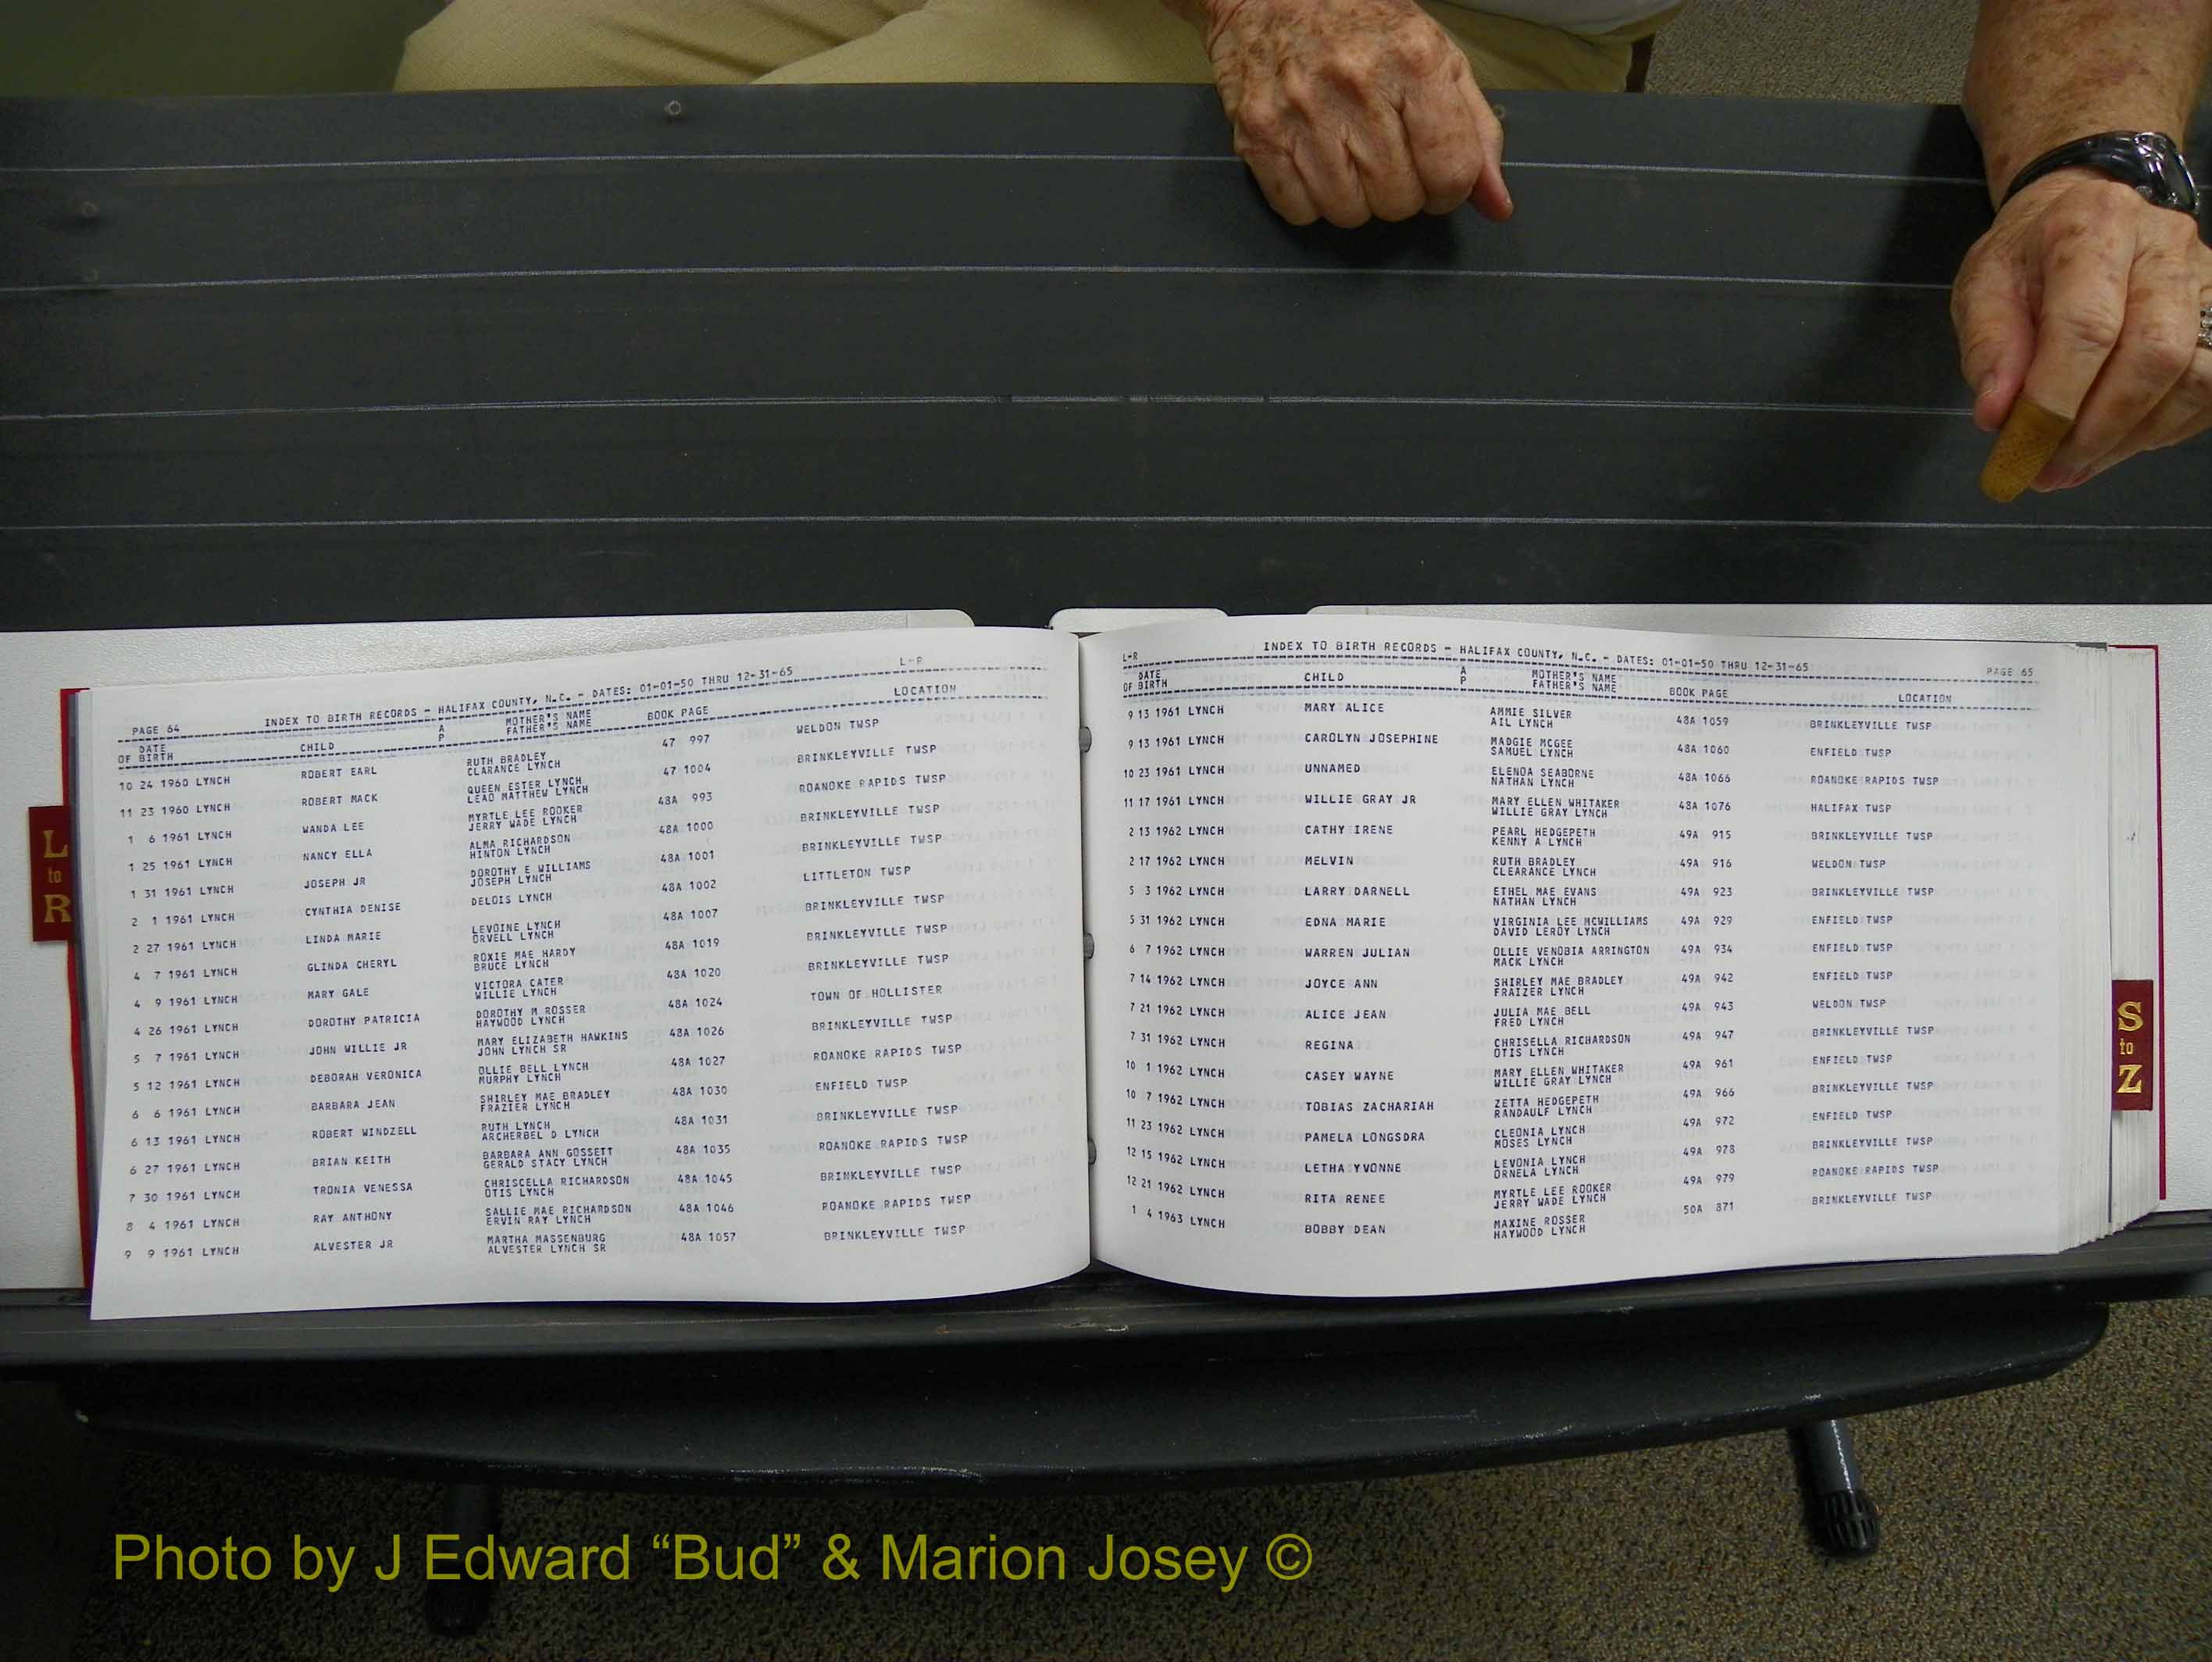 L
to
R
PAGE 64 INDEX TO BIRTH RECORDS - HALIFAX COUNTY, N.C. - DATES: 01-01-50 THRU 12-31-65 L-R
DATE OF BIRTH CHILD A P MOTHER'S NAME FATHER'S NAME BOOK PAGE LOCATION
10 24 1960 LYNCH ROBERT EARL RUTH BRADLEY 47 997 WELDON TWSP
CLARANCE LYNCH
11 23 1960 LYNCH ROBERT MACK QUEEN ESTER LYNCH 47 1004 BRINKLEYVILLE TWSP
LEAO MATTHEW LYNCH
1 6 1961 LYNCH WANDA LEE MYRTLE LEE ROOKER 48A 993 ROANOKE RAPIDS TWSP
JERRY WADE LYNCH
1 25 1961 LYNCH NANCY ELLA ALMA RICHARDSON 48A 1000 BRINKLEYVILLE TWSP
HINTON LYNCH
1 31 1961 LYNCH JOSEPH JR DOROTHY E WILLIAMS 48A 1001 BRINKLEYVILLE TWSP
JOSEPH LYNCH
2 1 1961 LYNCH CYNTHIA DENISE DELOIS LYNCH 48A 1002 LITTLETON TWSP
2 27 1961 LYNCH LINDA MARIE LEVOINE LYNCH 48A 1007 BRINKLEYVILLE TWSP
ORVELL LYNCH
4 7 1961 LYNCH GLINDA CHERYL ROXIE MAE HARDY 48A 1019 BRINKLEYVILLE TWSP
BRUCE LYNCH
4 9 1961 LYNCH MARY GALE VICTORA CATER 48A 1020 BRINKLEYVILLE TWSP
WILLIE LYNCH
4 26 1961 LYNCH DOROTHY PATRICIA DOROTHY M ROSSER 48A 1024 TOWN OF HOLLISTER
HAYWOOD LYNCH
5 7 1961 LYNCH JOHN WILLIE JR MARY ELIZABETH HAWKINS 48A 1026 BRINKLEYVILLE TWSP
JOHN LYNCH SR
5 12 1961 LYNCH DEBORAH VERONICA OLLIE BELL LYNCH 48A 1027 ROANOKE RAPIDS TWSP
MURPHY LYNCH
6 6 1961 LYNCH BARBARA JEAN SHIRLEY MAE BRADLEY 48A 1030 ENFIELD TWSP
FRAZIER LYNCH
6 13 1961 LYNCH ROBERT WINDZELL RUTH LYNCH 48A 1031 BRINKLEYVILLE TWSP
ARCHERBEL D LYNCH
6 27 1961 LYNCH BRIAN KEITH BARBARA ANN GOSSETT 48A 1035 ROANOKE RAPIDS TWSP
GERALD STACY LYNCH
7 30 1961 LYNCH TRONIA VENESSA CHRISCELLA RICHARDSON 48A 1045 BRINKLEYVILLE TWSP
OTIS LYNCH
8 4 1961 LYNCH RAY ANTHONY SALLIE MAE RICHARDSON 48A 1046 ROANOKE RAPIDS TWSP
ERVIN RAY LYNCH
9 9 1961 LYNCH ALVESTER JR MARTHA MASSENBURG 48A 1057 BRINKLEYVILLE TWSP
ALVESTER LYNCH SR
L-R INDEX TO BIRTH RECORDS - HALIFAX COUNTY, N.C. - DATES: 01-01-50 THRU 12-31-65 PAGE 65
DATE OF BIRTH CHILD A P MOTHER'S NAME FATHER'S NAME BOOK PAGE LOCATION
9 13 1961 LYNCH MARY ALICE AMMIE SILVER 48A 1059 BRINKLEYVILLE TWSP
AIL LYNCH
9 13 1961 LYNCH CAROLYN JOSEPHINE MADGIE MCGEE 48A 1060 ENFIELD TWSP
SAMUEL LYNCH
10 23 1961 LYNCH UNNAMED ELENOA SEABORNE 48A 1066 ROANOKE RAPIDS TWSP
NATHAN LYNCH
11 17 1961 LYNCH WILLIE GRAY JR MARY ELLEN WHITAKER 48A 1076 HALIFAX TWSP
WILLIE GRAY LYNCH
2 13 1962 LYNCH CATHY IRENE PEARL HEDGEPETH 49A 915 BRINKLEYVILLE TWSP
KENNY A LYNCH
2 17 1962 LYNCH MELVIN RUTH BRADLEY 49A 916 WELDON TWSP
CLEARANCE LYNCH
5 3 1962 LYNCH LARRY DARNELL ETHEL MAE EVANS 49A 923 BRINKLEYVILLE TWSP
NATHAN LYNCH
5 31 1962 LYNCH EDNA MARIE VIRGINIA LEE MCWILLIAMS 49A 929 ENFIELD TWSP
DAVID LEROY LYNCH
6 7 1962 LYNCH WARREN JULIAN OLLIE VENOBIA ARRINGTON 49A 934 ENFIELD TWSP
MACK LYNCH
7 14 1962 LYNCH JOYCE ANN SHIRLEY MAE BRADLEY 49A 942 ENFIELD TWSP
FRAIZER LYNCH
7 21 1962 LYNCH ALICE JEAN JULIA MAE BELL 49A 943 WELDON TWSP
FRED LYNCH
7 31 1962 LYNCH REGINA CHRISELLA RICHARDSON 49A 947 BRINKLEYVILLE TWSP
OTIS LYNCH
10 1 1962 LYNCH CASEY WAYNE MARY ELLEN WHITAKER 49A 961 ENFIELD TWSP
WILLIE GRAY LYNCH
10 7 1962 LYNCH TOBIAS ZACHARIAH ZETTA HEDGEPETH 49A 966 BRINKLEYVILLE TWSP
RANDAULF LYNCH
11 23 1962 LYNCH PAMELA LONGSDRA CLEONIA LYNCH 49A 972 ENFIELD TWSP
MOSES LYNCH
12 15 1962 LYNCH LETHA YVONNE LEVONIA LYNCH 49A 978 BRINKLEYVILLE TWSP
ORNELA LYNCH
12 21 1962 LYNCH RITA RENEE MYRTLE LEE ROOKER 49A 979 ROANOKE RAPIDS TWSP
JERRY WADE LYNCH
1 4 1963 LYNCH BOBBY DEAN MAXINE ROSSER 50A 871 BRINKLEYVILLE TWSP
HAYWOOD LYNCH
S
to
Z
Photo by J Edward “Bud” & Marion Josey ©